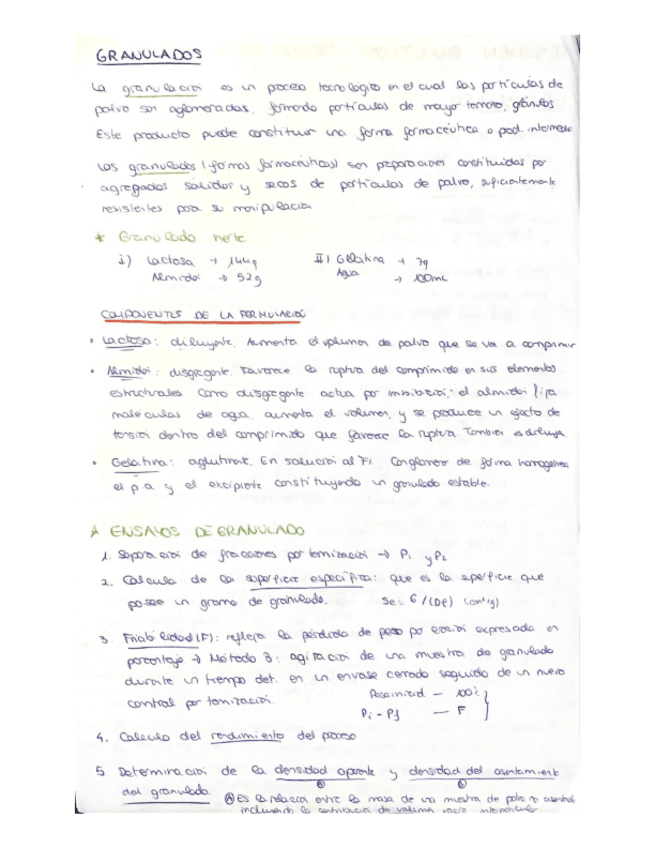 GRANULADOS
La granulación es un proceso tecnológico en el cual las partículas de
polvo son aglomeradas, formando partículas de mayor tamaño, gránulos
Este producto puede constituir una forma farmacéutica o prod. intermedio
Los granulados (formas farmacéuticas) son preparaciones constituidas por
agregados sólidos y secos de partículas de polvo, suficientemente
resistentes para su manipulación
* Granulado norte
i) Lactosa → 144g II) Gelatina → 7g
Almidón → 52g Agua → 100mL
COMPONENTES DE LA FORMULACIÓN
• Lactosa: diluyente. Aumenta el volumen de polvo que se va a comprimir
• Almidón: disgregante. Favorece la ruptura del comprimido en sus elementos
estructurales. Como disgregante actua por imbibición; el almidón fija
moleculas de agua, aumenta el volumen, y se produce un efecto de
torsión dentro del comprimido que favorece la ruptura. Tambien es diluye.
• Gelatina: aglutinante. En solución al 7%. Conglomera de forma homogénea
el p.a y el excipiente constituyendo un granulado estable.
* ENSAYOS DE GRANULADO
1. Separación de fracciones por tamización → P1 y P2
2. Calculo de la superficie específica: que es la superficie que
posee un gramo de granulado. Se = 6/(Dρ) (cm²/g)
3. Friabilidad (F): refleja la pérdida de peso por erosión expresada en
porcentaje → Método B: agitación de una muestra de granulado
durante un tiempo det. en un envase cerrado seguido de un nuevo
control por tamización. Peso inicial — 100%
Pi - Pf — F
4. Calculo del rendimiento del proceso
5. Determinación de la densidad aparente y densidad del asentamiento
del granulado. Ⓐ Es la relación entre la masa de una muestra de polvo no asentada
incluyendo la contribución de volumen vacío interparticular